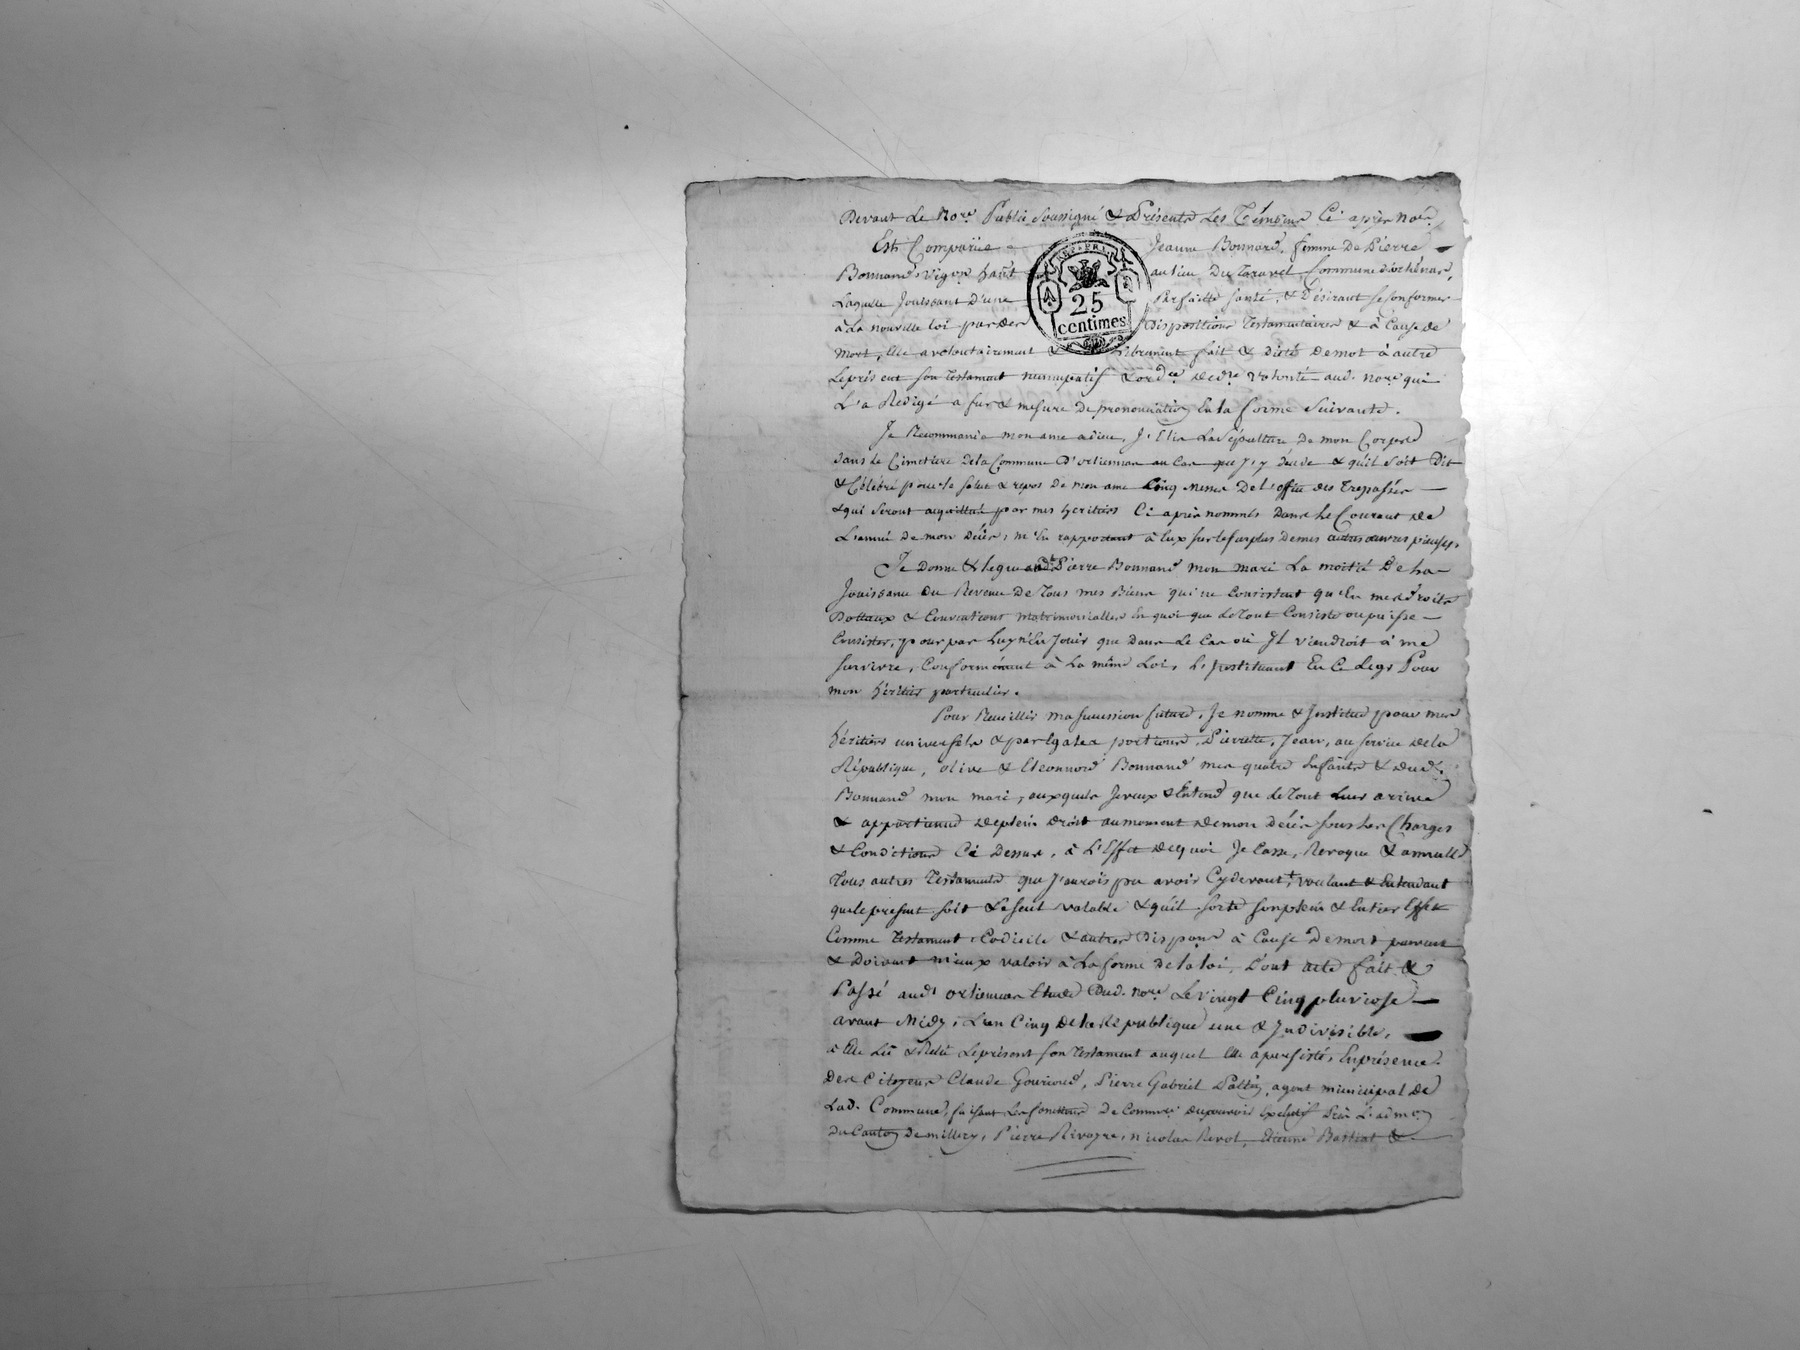 Devant Le No.re Public Soussigné & Présents Les Témoins Ci après Nom.s
Est Comparüe Jeanne Bonnand, femme De Pierre
Bonnand, Vig.on hab.t au lieu Du Taravel Commune d'orliénas,
Laquelle Jouissant D'une Parfaitte santé, & Désirant se Conformer
à La nouvelle loi par des Dispositions Testamentaires & à Cause de
Mort, Elle a volontairement & librement fait & dicté De mot à autre
Le présent son Testament nuncupatif & ord.ce De d.re Volonté aud. No.re qui
L'a Rédigé a fur & mesure De prononciation En la forme Suivante.
Je Recommande mon ame a dieu, J'Elis La Sépulture De mon Corps
dans le Cimetière De la Commune D'orliennas au Cas que J'y décède & qu'il soit Dit
& Célébré pour le salut & repos De mon ame Cinq Messes De l'office des Trepassés
& qui seront acquittées par mes héritiers Ci après nommés Dans Le Courant de
L'année De mon décès, m'En rapportant à Eux sur le surplus De mes autres œuvres pieuses,
Je Donne & legue aud.t Pierre Bonnand mon mari La moitié De la
Jouissance Du Revenu De Tous mes Biens qui ne Consistent qu'En mes droits
Dottaux & Conventions Matrimonialles En quoi que Le Tout Consiste ou puisse
Consister, pour par Luy n'En Jouir que Dans Le Cas où Il viendroit à me
survivre, Conformément à La même Loi, L'Instituant En Ce Legs Pour
mon héritier particulier.
Pour Recueillir ma succession future, Je nomme & Institue pour mes
héritiers universels & par Egales portions, Pierrette, Jean, au service de la
République, olive & Eleonnore Bonnand mes quatre Enfants & dud.
Bonnand mon mari, auxquels Je veux & Entend que Le Tout Leur arrive
& appartienne De plein Droit au moment De mon décès sous Les Charges
& Conditions Ci Dessus, à L'Effet De quoi Je Casse, Revoque & annulle
Tous autres Testaments que J'aurois pu avoir Cy devant, voulant & Entendant
que le présent soit Le seul valable & qu'il sorte son plein & Entier Effet
Comme Testament, Codicile & autres Dispon.s à Cause De mort pouvant
& Devant mieux valoir à La forme De la loi, Dont acte fait &
Passé aud.t orliennas Etude Dud. No.re Le Vingt Cinq pluviose
avant Midy, L'an Cinq De la République une & Indivisible,
à Elle Lû & Relû Le présent son Testament auquel Elle a persisté, En présence
Des Citoyens Claude Gouriond, Pierre Gabriel agent municipal De
Lad. Commune, faisant Les fonctions De Commre. Du pouvoir Exécutif Près L'admon
Du Canton De Millery, Pierre Rivoyre, Nicolas Revol, Etienne &
REP. FRA.
25
centimes